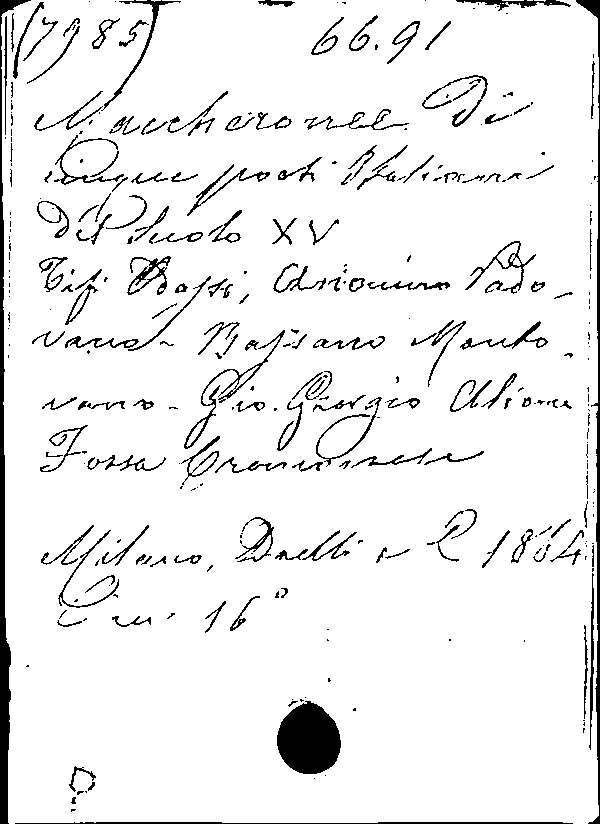 (7985) 66.91
Maccheronee Di
cinque poeti Italiani
del Secolo XV
Tifi Odassi, Anonimo Pado-
vano - Bassano Manto-
vano - Gio. Giorgio Alione
Fossa Cremonese
Milano, Daelli e C 1864
in 16°